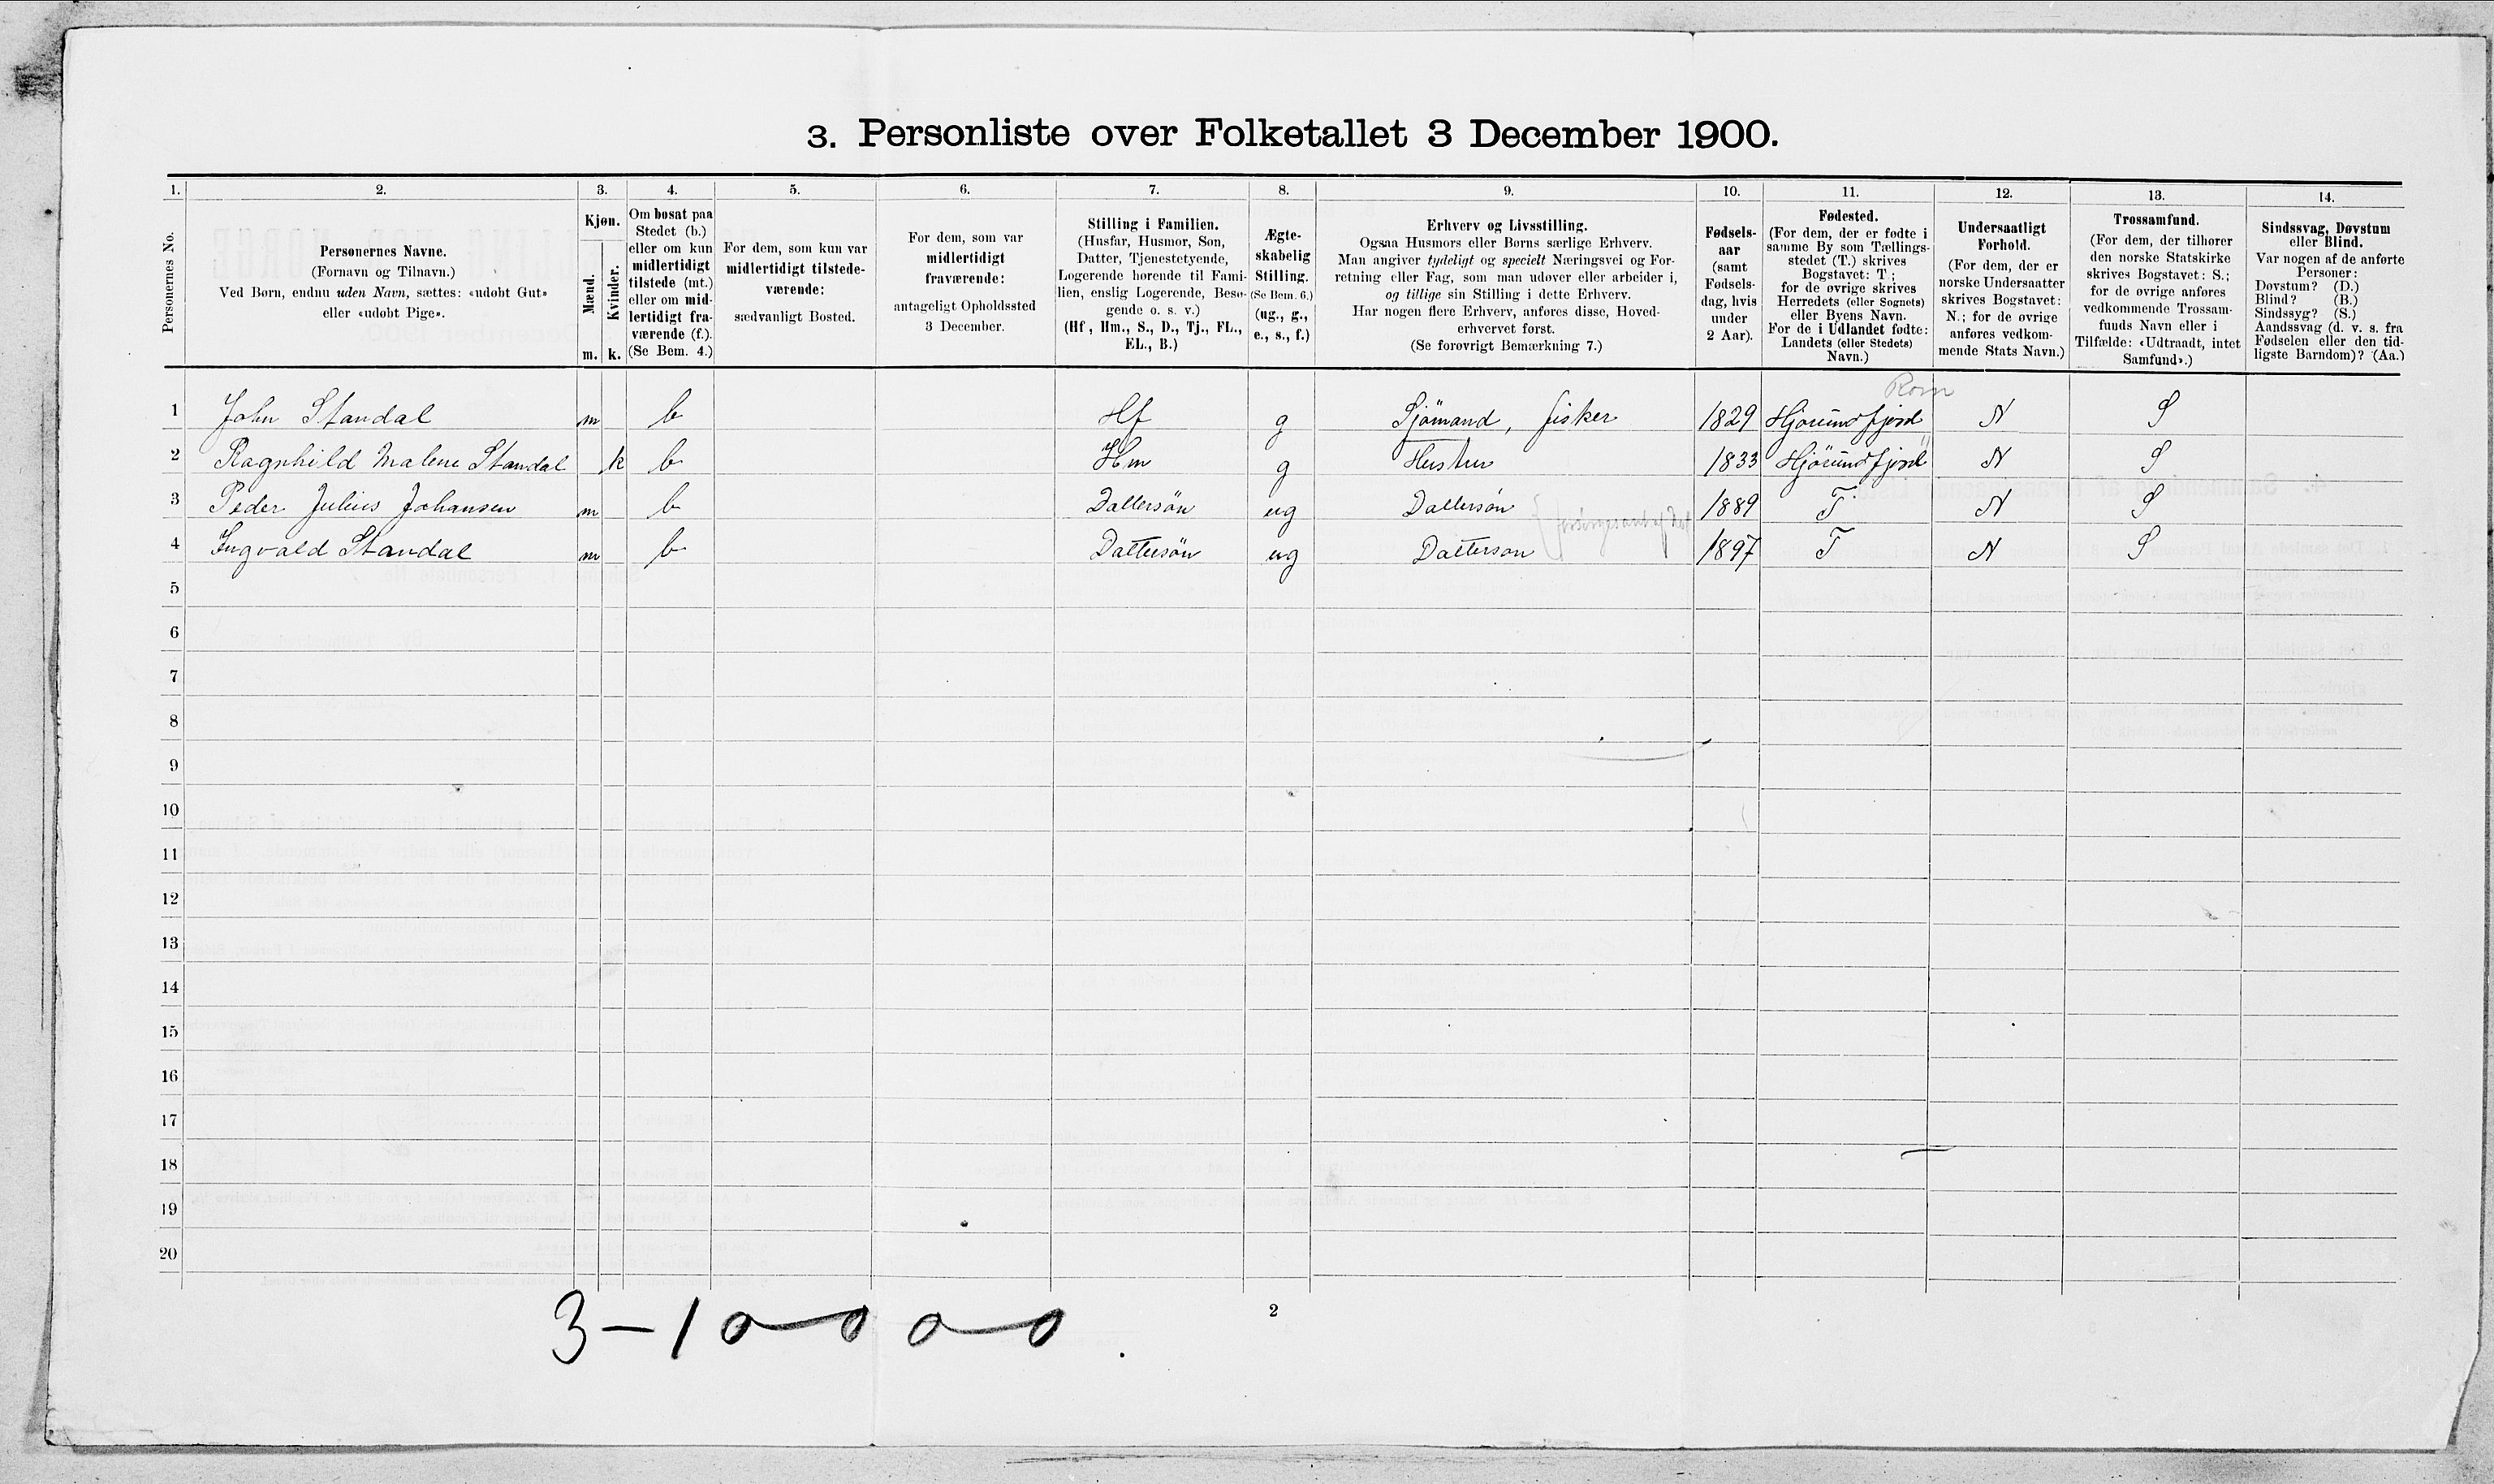 3. Personliste over Folketallet 3 December 1900.
1. 2. 3. 4. 5. 6. 7. 8. 9. 10. 11. 12. 13. 14.
Personernes No.
Personernes Navne.
(Fornavn og Tilnavn.)
Ved Børn, endnu uden Navn, sættes: «udøbt Gut»
eller «udøbt Pige».
Kjøn.
Mænd.
Kvinder.
m. k.
Om bosat paa
Stedet (b.)
eller om kun
midlertidigt
tilstede (mt.)
eller om mid-
lertidigt fra-
værende (f.).
(Se Bem. 4.)
For dem, som kun var
midlertidigt tilstede-
værende:
sædvanligt Bosted.
For dem, som var
midlertidigt
fraværende:
antageligt Opholdssted
3 December.
Stilling i Familien.
(Husfar, Husmor, Søn,
Datter, Tjenestetyende,
Logerende hørende til Fami-
lien, enslig Logerende, Besø-
gende o. s. v.)
(Hf, Hm., S., D., Tj., FL.,
EL., B.)
Ægte-
skabelig
Stilling.
(Se Bem. 6.)
(ug., g.,
e., s., f.)
Erhverv og Livsstilling.
Ogsaa Husmors eller Børns særlige Erhverv.
Man angiver tydeligt og specielt Næringsvei og For-
retning eller Fag, som man udøver eller arbeider i,
og tillige sin Stilling i dette Erhverv.
Har nogen flere Erhverv, anføres disse, Hoved-
erhvervet først.
(Se forøvrigt Bemærkning 7.)
Fødsels-
aar
(samt
Fødsels-
dag, hvis
under
2 Aar).
Fødested.
(For dem, der er fødte i
samme By som Tællings-
stedet (T.) skrives
Bogstavet: T;
for de øvrige skrives
Herredets (eller Sognets)
eller Byens Navn.
For de i Udlandet fødte:
Landets (eller Stedets)
Navn.)
Undersaatligt
Forhold.
(For dem, der er
norske Undersaatter
skrives Bogstavet:
N.; for de øvrige
anføres vedkom-
mende Stats Navn.)
Trossamfund.
(For dem, der tilhører
den norske Statskirke
skrives Bogstavet: S.;
for de øvrige anføres
vedkommende Trossam-
funds Navn eller i
Tilfælde: «Udtraadt, intet
Samfund».)
Sindssvag, Døvstum
eller Blind.
Var nogen af de anførte
Personer:
Døvstum? (D.)
Blind? (B.)
Sindssyg? (S.)
Aandssvag (d. v. s. fra
Fødselen eller den tid-
ligste Barndom)? (Aa.)
Rom
1 John Standal m b Hf g Sjömand, fisker 1829 Hjorundfjord N S
2 Ragnhild Malene Standal k b Hm g Hustru 1833 Hjörundfjord " N S
3 Peder Julius Johansen m b Dattersön ug Dattersön 1889 T N S
4 Ingvald Standal m b Dattersön ug Datterson 1897 T N S
5
6
7
8
9
10
11
12
13
14
15
16
17
18
19
20
3 – 1 0 – 0 0 – 0
2